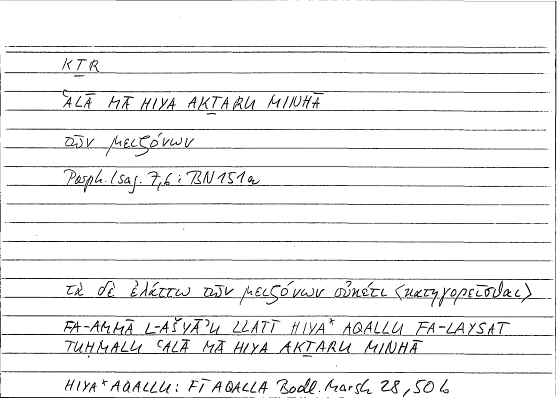 KṮR
ʿALĀ MĀ HIYA AKṮARU MINHĀ
τῶν μειζόνων
Porph. Isag. 7,6 : BN 151a
τὰ δὲ ἐλάττω τῶν μειζόνων οὐκέτι <κατηγορεῖσθαι>
FA-AMMĀ L-AŠYĀʾU LLATĪ HIYA* AQALLU FA-LAYSAT
TUḤMALU ʿALĀ MĀ HIYA AKṮARU MINHĀ
HIYA* AQALLU : FĪ AQALLA Bodl. Marsh 28, 50 b